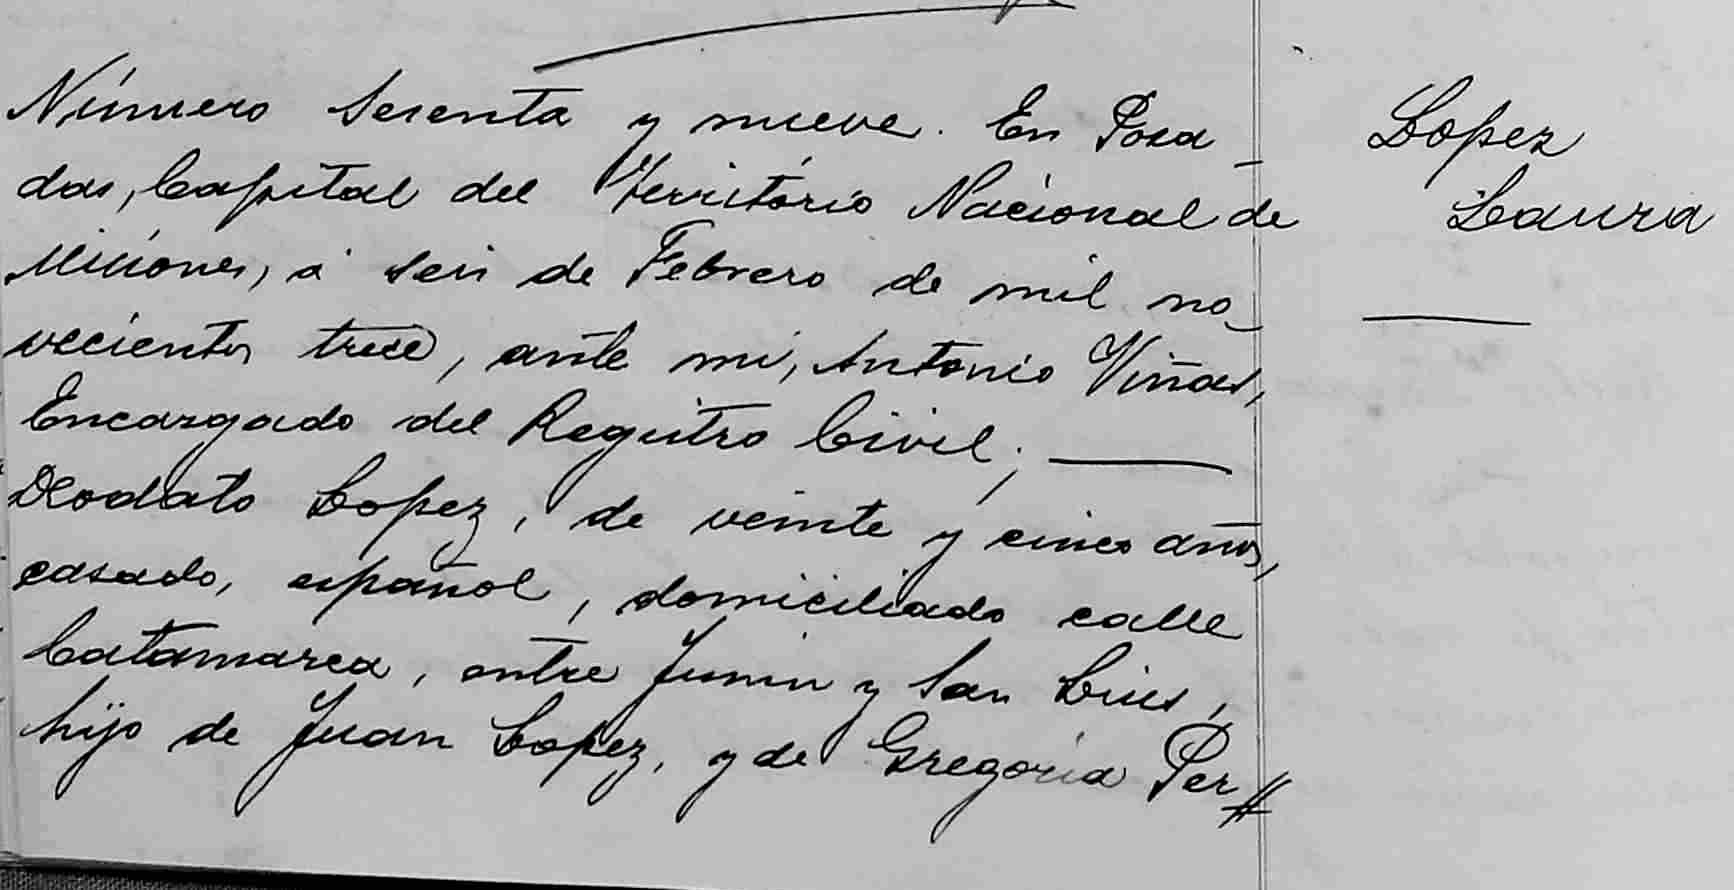 Número sesenta y nueve. En Posa-
das, Capital del Território Nacional de
Misiones, á seis de Febrero de mil no-
vecientos trece, ante mi, Antonio Viñas,
Encargado del Registro Civil; —
Deodato Lopez, de veinte y cinco años,
casado, español, domiciliado calle
Catamarca, entre Junin y San Luis,
hijo de Juan Lopez, y de Gregoria Per//
Lopez
Laura